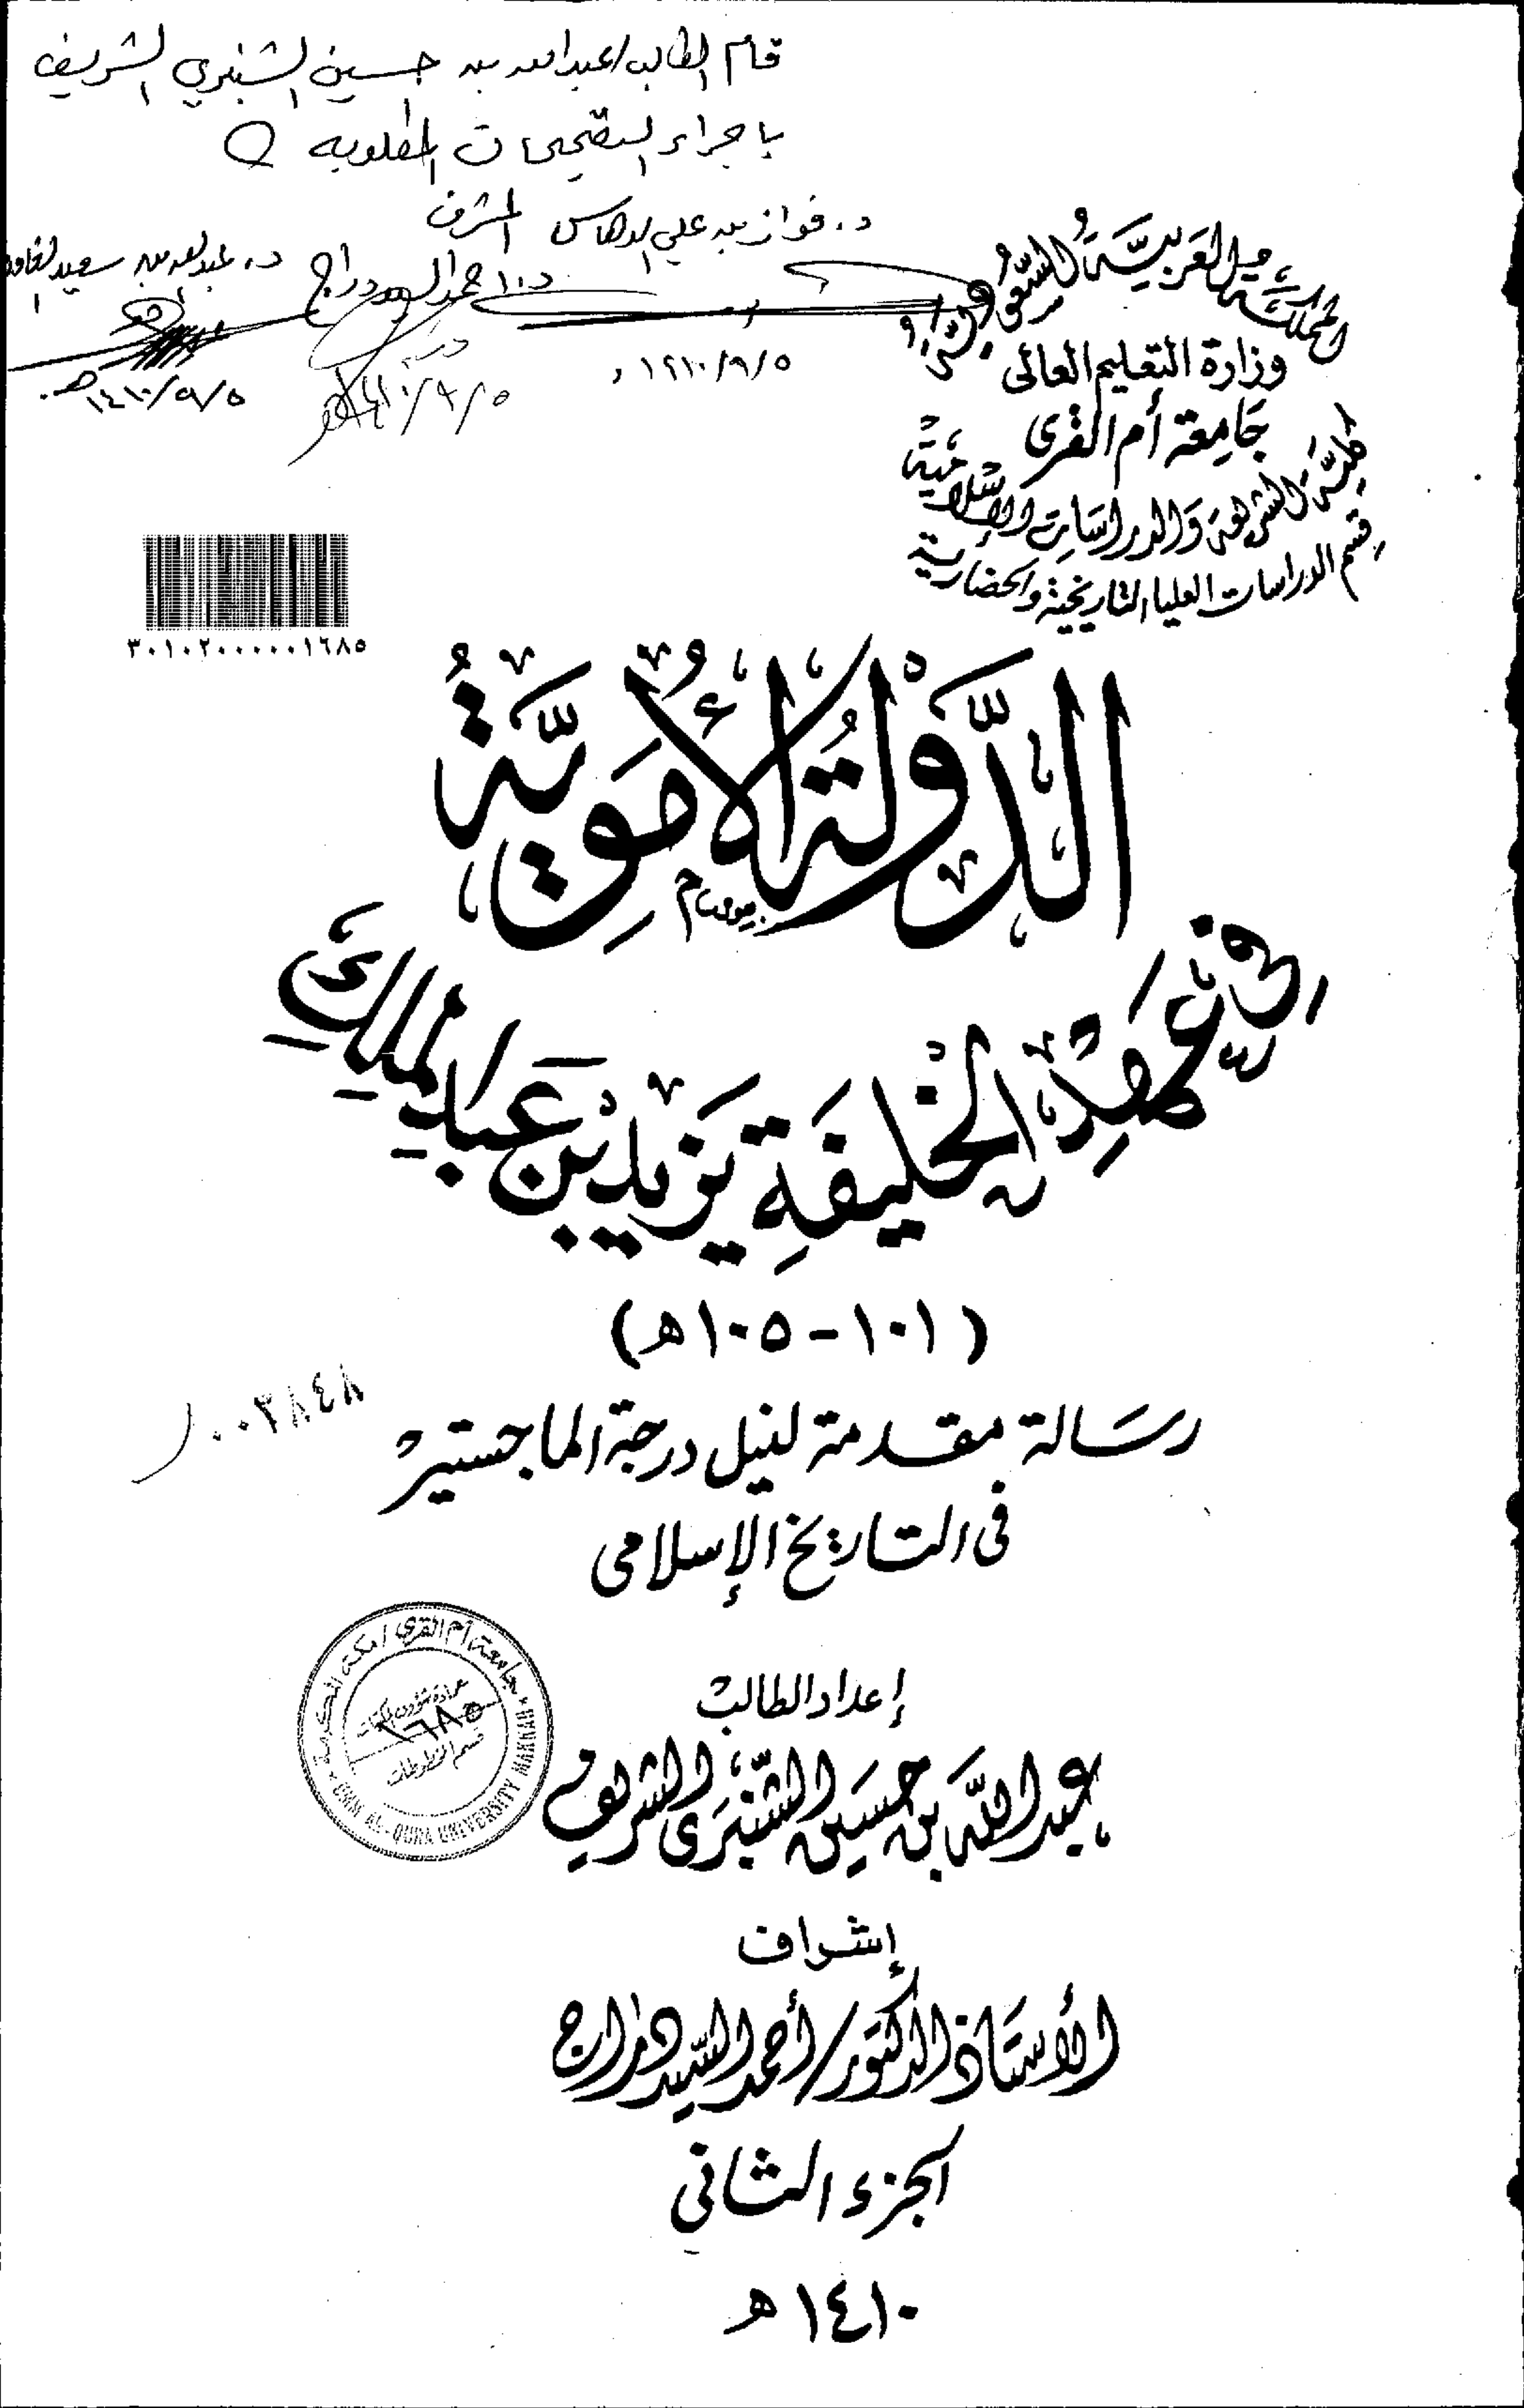 قام الطالب/عبدالله بن حسين الشنبري الشريف
باجراء التصحيحات المطلوبه
د. فواز بن علي الدهاس المشرف
د. احمد السيد دراج
د. عبدالله بن سعيد الغامدي
١٤١٠/٩/٥
١٤١٠/٩/٥
١٤١٠/٩/٥هـ
المملكة العربية السعودية
وزارة التعليم العالى
جامعة أم القرى
كلية الشريعة والدراسات الإسلامية
قسم الدراسات العليا التاريخية والحضارية
٣٠١٠٢٠٠٠٠٠١٦٨٥
الدَّوْلَةُ الأُمَوِيَّةُ
فِي عَهْدِ الخَلِيفَةِ يَزِيدَ بْنِ عَبْدِ المَلِكِ
(١٠١-١٠٥هـ)
٠٠٣٨٤٨
رسالة مقدمة لنيل درجة الماجستير
فى التاريخ الإسلامى
جامعة أم القرى / مكة المكرمة
١٦٨٥
قسم المخطوطات
UMM AL-QURA UNIVERSITY MAKKAH
إعداد الطالب
عبد الله بن حسين الشنبرى الشريف
إشراف
الأستاذ الدكتور/أحمد السيد دراج
الجزء الثانى
١٤١٠ هـ